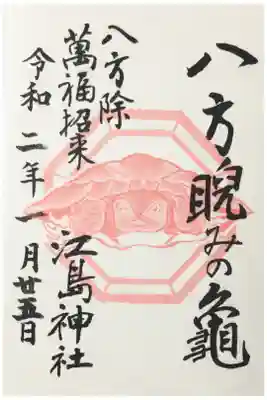 八方睨みの亀
江島神社
八方除
萬福招来
令和二年一月廿五日